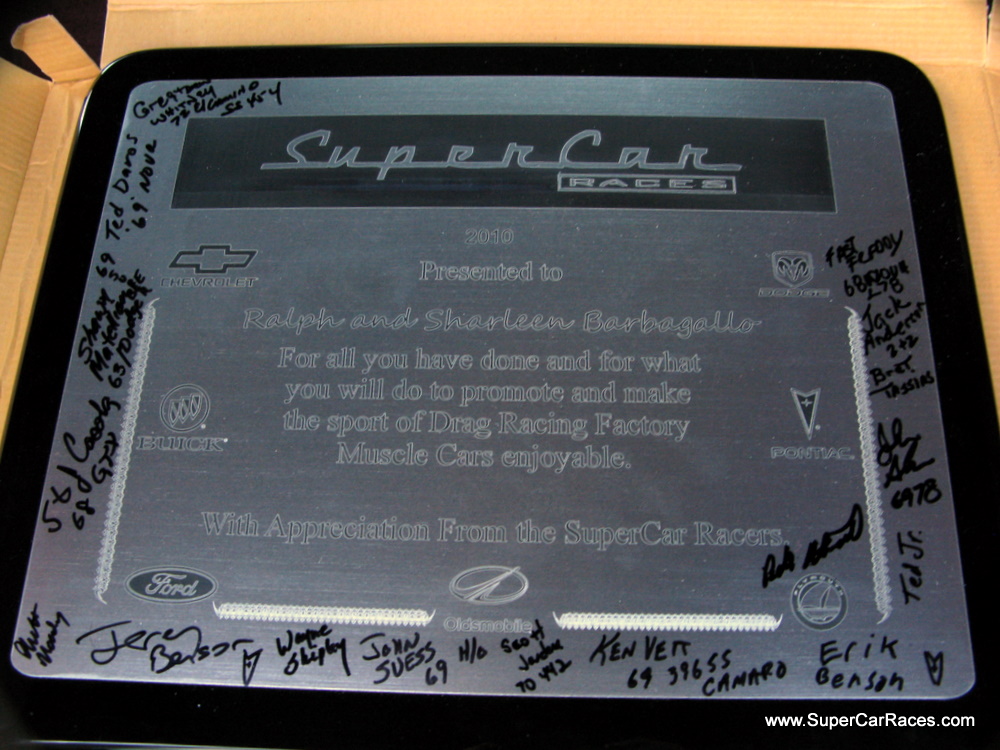 SuperCar
RACES
2010
Presented to
Ralph and Sharleen Barbagallo
For all you have done and for what
you will do to promote and make
the sport of Drag Racing Factory
Muscle Cars enjoyable.
With Appreciation From the SuperCar Racers.
CHEVROLET
DODGE
BUICK
PONTIAC
Ford
Oldsmobile
PLYMOUTH
WHITNEY
72 El CAMINO
SS 454
Ted Daros
'69 NOVA
69
63/Dodge
Cassedy
68 GTX
FAST
FLEDDY
Jack
Anderson
2+2
Bret
TASSIAS
6978
Ted Jr.
Jerey
Benson
Wayne
Shipley
JOHN
SUESS
69
H/O
Scott
Jordan
70 442
KEN VETT
69 396 SS
CAMARO
Erik
Benson
www.SuperCarRaces.com